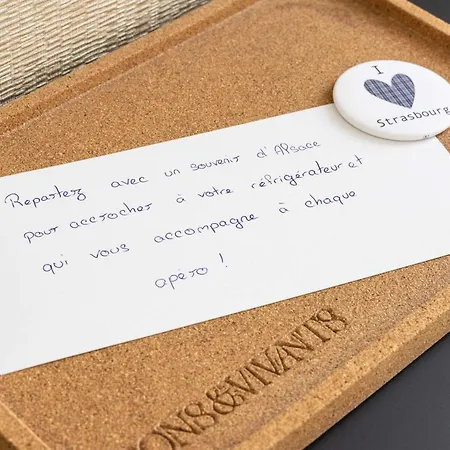 I
Strasbourg
Repartez avec un souvenir d'Alsace
pour accrocher à votre réfrigérateur et
qui vous accompagne à chaque
apéro !
ONS&VIVANTS